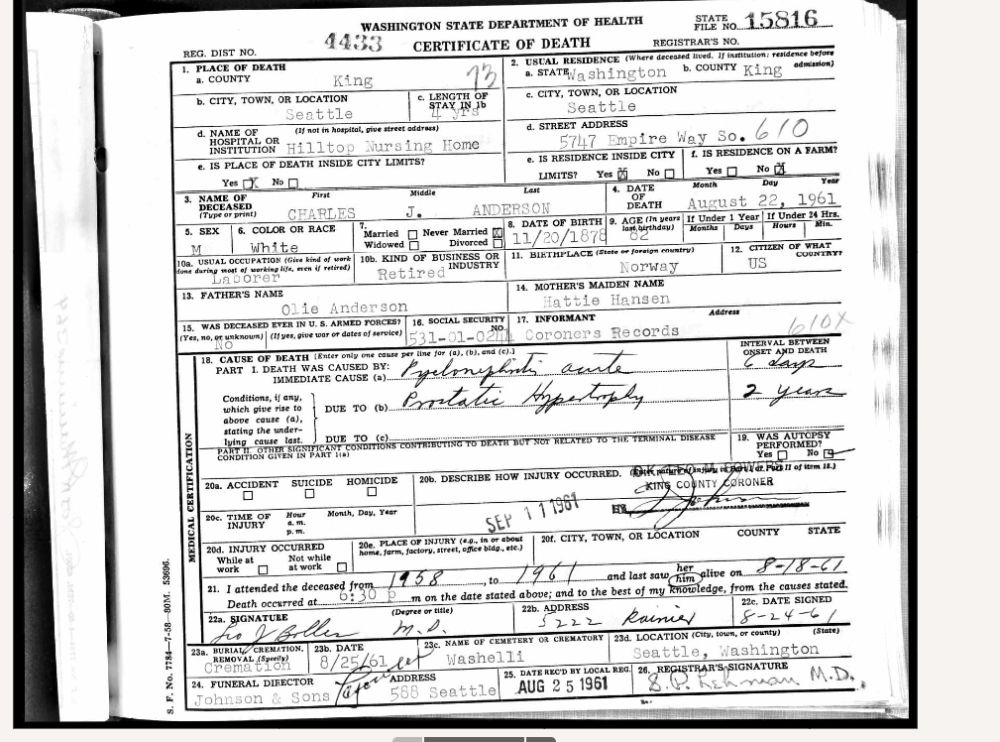 WASHINGTON STATE DEPARTMENT OF HEALTH
STATE FILE NO. 15816
4433 CERTIFICATE OF DEATH
REG. DIST NO.
REGISTRAR'S NO.
1. PLACE OF DEATH
a. COUNTY King 73
2. USUAL RESIDENCE (Where deceased lived. If institution: residence before admission)
a. STATE Washington b. COUNTY King
b. CITY, TOWN, OR LOCATION Seattle
c. LENGTH OF STAY IN 1b 4 yrs
c. CITY, TOWN, OR LOCATION
Seattle
d. NAME OF HOSPITAL OR INSTITUTION (If not in hospital, give street address)
Hilltop Nursing Home
d. STREET ADDRESS
5747 Empire Way So. 610
e. IS PLACE OF DEATH INSIDE CITY LIMITS?
Yes X No
e. IS RESIDENCE INSIDE CITY LIMITS? Yes X No
f. IS RESIDENCE ON A FARM?
Yes No X
3. NAME OF DECEASED (Type or print)
First Middle Last
CHARLES J. ANDERSON
4. DATE OF DEATH
Month Day Year
August 22, 1961
5. SEX
M
6. COLOR OR RACE
White
7.
Married Never Married X
Widowed Divorced
8. DATE OF BIRTH
11/20/1878
9. AGE (In years last birthday)
82
If Under 1 Year
Months Days
If Under 24 Hrs.
Hours Min.
10a. USUAL OCCUPATION (Give kind of work done during most of working life, even if retired)
Laborer
10b. KIND OF BUSINESS OR INDUSTRY
Retired
11. BIRTHPLACE (State or foreign country)
Norway
12. CITIZEN OF WHAT COUNTRY?
US
13. FATHER'S NAME
Olie Anderson
14. MOTHER'S MAIDEN NAME
Hattie Hansen
15. WAS DECEASED EVER IN U. S. ARMED FORCES?
(Yes, no, or unknown) (If yes, give war or dates of service)
No
16. SOCIAL SECURITY NO.
531-01-02
17. INFORMANT Address
Coroners Records
610X
18. CAUSE OF DEATH [Enter only one cause per line for (a), (b), and (c).]
INTERVAL BETWEEN ONSET AND DEATH
PART I. DEATH WAS CAUSED BY:
IMMEDIATE CAUSE (a) Pyelonephritis acute 6 days
Conditions, if any, which give rise to above cause (a), stating the underlying cause last.
DUE TO (b) Prostatic Hypertrophy 2 years
DUE TO (c)
PART II. OTHER SIGNIFICANT CONDITIONS CONTRIBUTING TO DEATH BUT NOT RELATED TO THE TERMINAL DISEASE CONDITION GIVEN IN PART I(a)
19. WAS AUTOPSY PERFORMED?
Yes No
MEDICAL CERTIFICATION
20a. ACCIDENT SUICIDE HOMICIDE
20b. DESCRIBE HOW INJURY OCCURRED. (Enter nature of injury in Part I or Part II of item 18.)
KING COUNTY CORONER
SEP 11 1961
BY
20c. TIME OF INJURY
Hour a.m. p.m.
Month, Day, Year
20d. INJURY OCCURRED
While at work Not while at work
20e. PLACE OF INJURY (e.g., in or about home, farm, factory, street, office bldg., etc.)
20f. CITY, TOWN, OR LOCATION COUNTY STATE
21. I attended the deceased from 1958, to 1961 and last saw her him alive on 8-18-61
Death occurred at 6:30 p m on the date stated above; and to the best of my knowledge, from the causes stated.
22a. SIGNATURE (Degree or title)
M.D.
22b. ADDRESS
5222 Rainier
22c. DATE SIGNED
8-24-61
23a. BURIAL, CREMATION, REMOVAL (Specify)
Cremation
23b. DATE
8/25/61
23c. NAME OF CEMETERY OR CREMATORY
Washelli
23d. LOCATION (City, town, or county) (State)
Seattle, Washington
24. FUNERAL DIRECTOR ADDRESS
Johnson & Sons 588 Seattle
25. DATE REC'D BY LOCAL REG.
AUG 25 1961
26. REGISTRAR'S SIGNATURE
S.P. Lehman M.D.
S. F. No. 7784-7-58-80M. 53696.